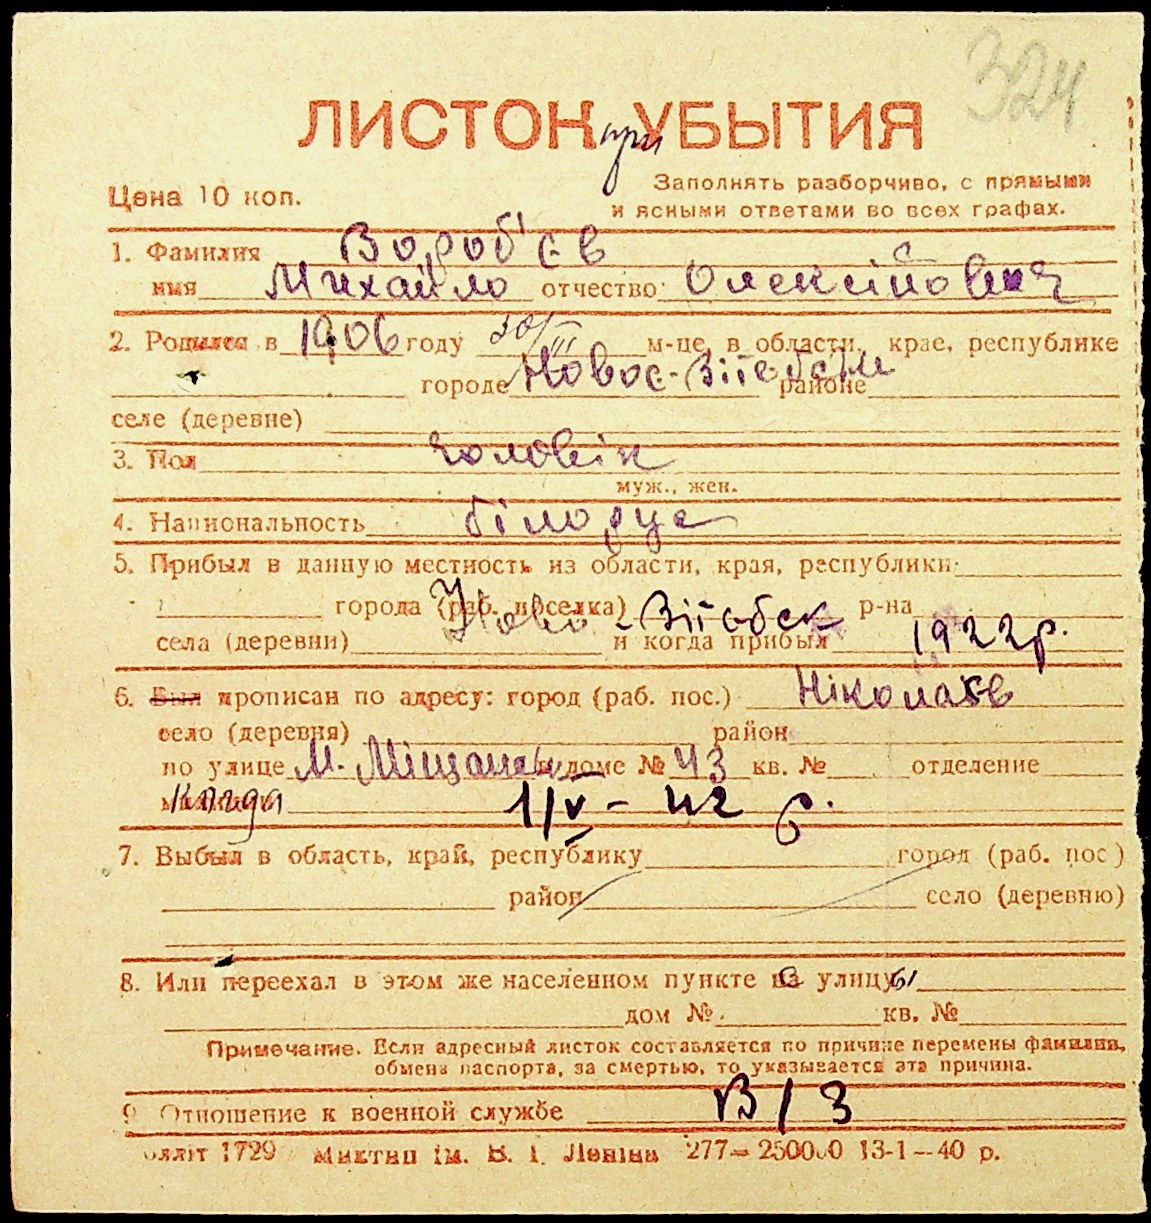 324
ЛИСТОК при УБЫТИЯ
Цена 10 коп.
Заполнять разборчиво, с прямыми
и ясными ответами во всех графах.
1. Фамилия Вороб'єв
имя Михайло отчество Олексійович
2. Родился в 1906 году 20/III м-це, в области, крае, республике
городе Ново-Вітебськ районе
селе (деревне)
3. Пол чоловік
муж., жен.
4. Национальность білорус
5. Прибыл в данную местность из области, края, республики
города (раб. поселка) Ново-Вітебск р-на
села (деревни) и когда прибыл 1922 р.
6. Был прописан по адресу: город (раб. пос.) Ніколаєв
село (деревня) район
по улице М. Міщанск в доме № 43 кв. № отделение
милиции когда 1/V-42 р.
7. Выбыл в область, край, республику город (раб. пос)
район село (деревню)
8. Или переехал в этом же населенном пункте с улицы
дом № кв. №
Примечание. Если адресный листок составляется по причине перемены фамилии,
обмена паспорта, за смертью, то указывается эта причина.
9 Отношение к военной службе В/З
1729 Миктип ім. В. І. Леніна 277—250000 13-1—40 р.